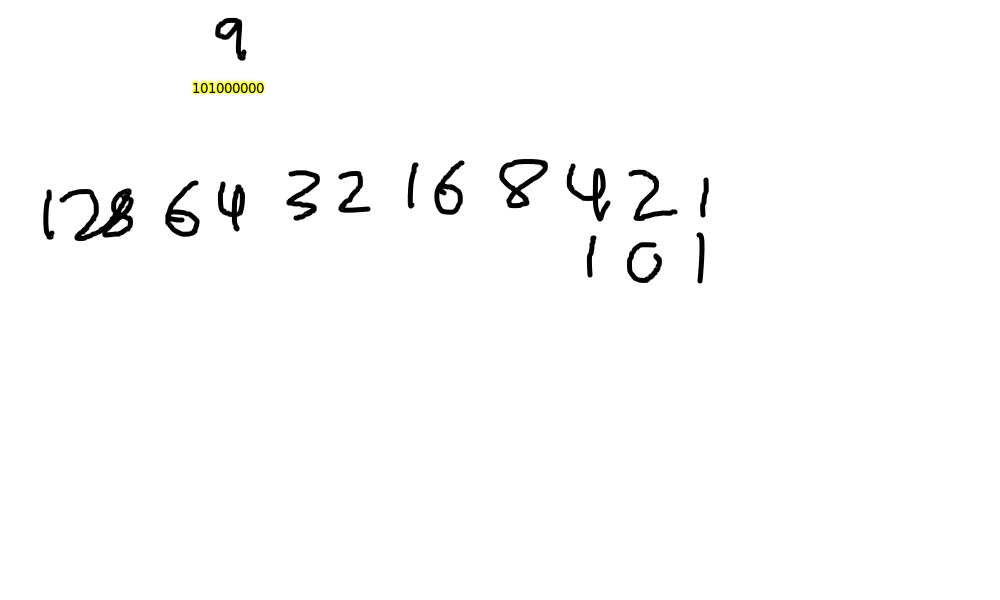 9
101000000
128 64 32 16 8 4 2 1
1 0 1